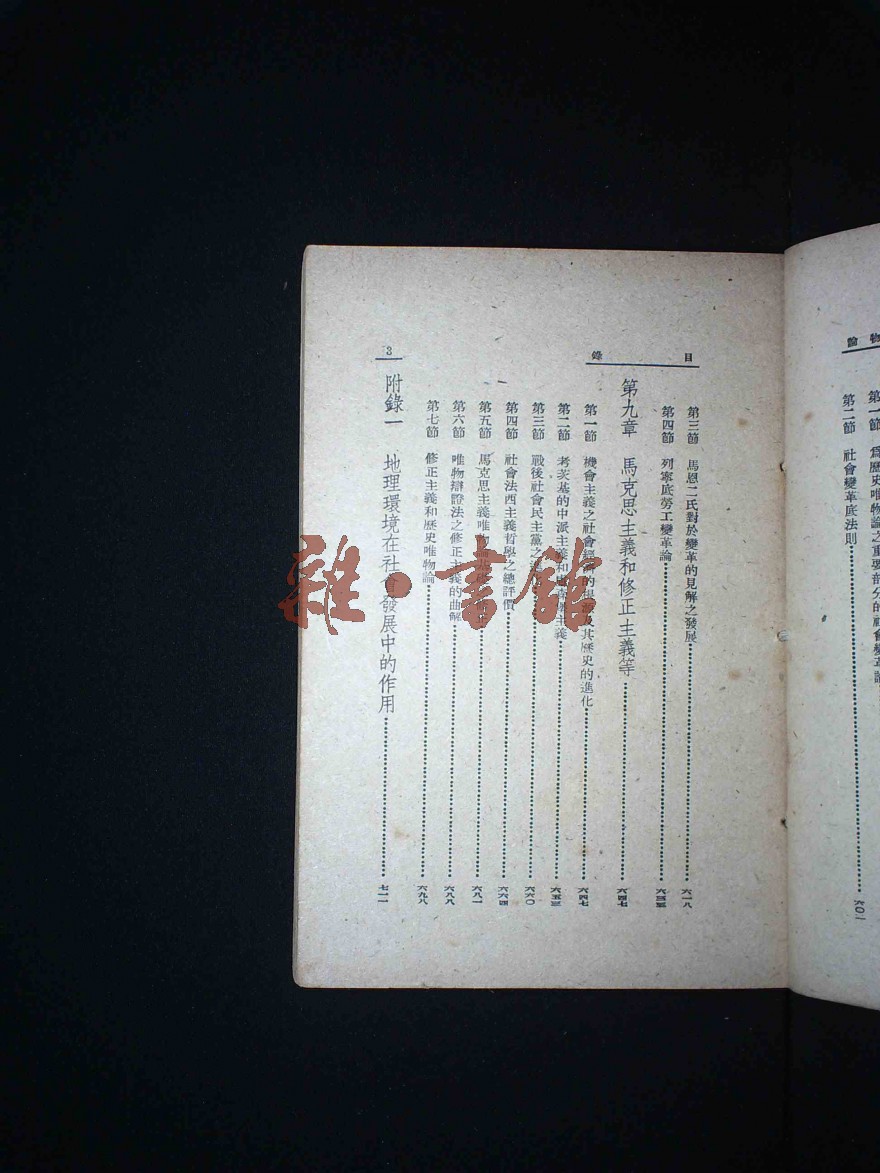 物論
第一節 爲歷史唯物論之重要部分的社會變革論
第二節 社會變革底法則 六〇一
目錄
第三節 馬恩二氏對於變革的見解之發展 六一八
第四節 列寧底勞工變革論 六三三
第九章 馬克思主義和修正主義等 六四七
第一節 機會主義之社會經濟的根源及其歷史的進化 六四七
第二節 考茨基的中派主義和 主義 六五三
第三節 戰後社會民主黨之 六六〇
第四節 社會法西主義哲學之總評價 六六四
第五節 馬克思主義唯物論 六八一
第六節 唯物辯證法之修正主義的曲解 六八八
第七節 修正主義和歷史唯物論 六九八
附錄一 地理環境在社會發展中的作用 七一一
3
雜·書館